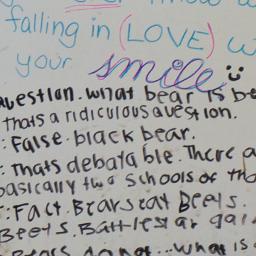 falling in (LOVE) w
your smile
uestion. what bear is be
thats a ridiculous question.
: False. black bear.
: Thats debatable. There a
basically two schools of tho
: Fact. Bears eat Beets.
Beets. Battlestar gal
Bears do not... what is